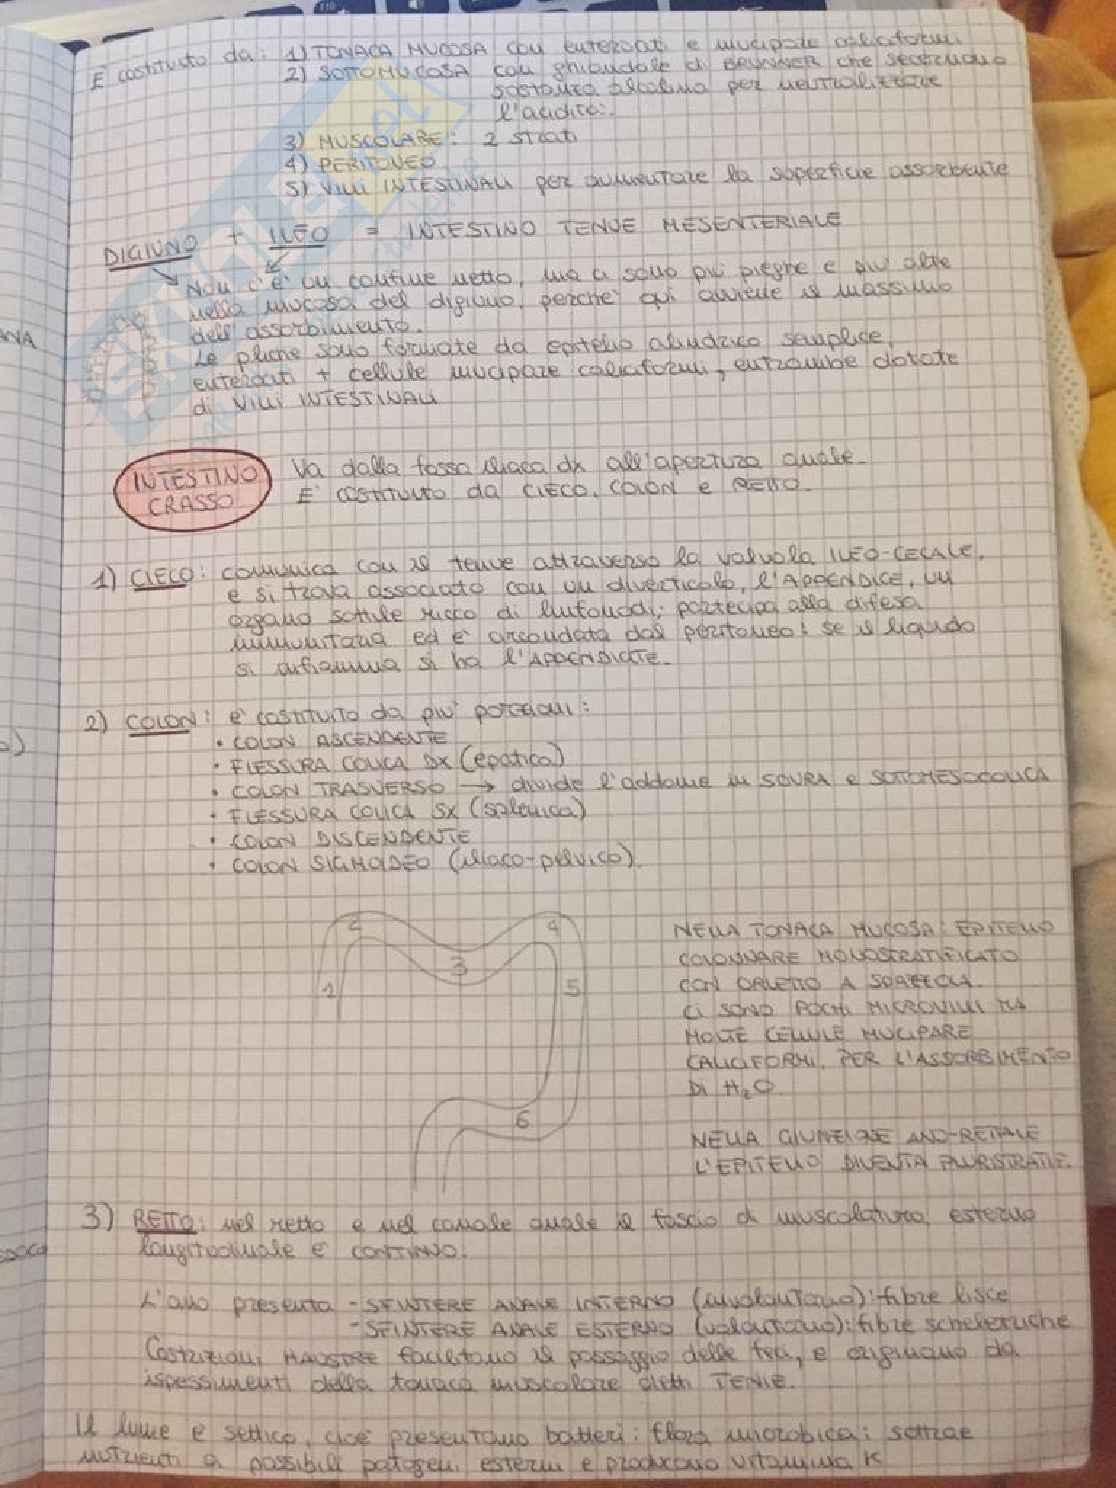 È costituito da: 1) TONACA MUCOSA con enterociti e mucipare caliciformi.
2) SOTTOMUCOSA con ghiandole di BRUNNER che secernono
sostanza alcalina per neutralizzare
l'acidità.
3) MUSCOLARE: 2 strati
4) PERITONEO
5) VILLI INTESTINALI per aumentare la superficie assorbente
DIGIUNO + ILEO = INTESTINO TENUE MESENTERIALE
Non c'è un confine netto, ma ci sono più pieghe e più alte
nella mucosa del digiuno, perché qui avviene il massimo
dell'assorbimento.
Le pliche sono formate da epitelio cilindrico semplice,
enterociti + cellule mucipare caliciformi, entrambe dotate
di VILLI INTESTINALI
INTESTINO
CRASSO
Va dalla fossa iliaca dx all'apertura anale.
È costituito da CIECO, COLON e RETTO.
1) CIECO: comunica con il tenue attraverso la valvola ILEO-CECALE,
e si trova associato con un diverticolo, l'APPENDICE, un
organo sottile ricco di linfonodi; partecipa alla difesa
immunitaria ed è circondata dal peritoneo: se il liquido
si infiamma si ha l'APPENDICITE.
2) COLON: è costituito da più porzioni:
• COLON ASCENDENTE
• FLESSURA COLICA DX (epatica)
• COLON TRASVERSO → divide l'addome in SOVRA e SOTTOMESOCOLICA
• FLESSURA COLICA SX (splenica)
• COLON DISCENDENTE
• COLON SIGMOIDEO (iliaco-pelvico).
1
2
3
4
5
6
NELLA TONACA MUCOSA: EPITELIO
COLONNARE MONOSTRATIFICATO
CON ORLETTO A SPAZZOLA.
CI SONO POCHI MICROVILLI MA
MOLTE CELLULE MUCIPARE
CALICIFORMI, PER L'ASSORBIMENTO
DI H₂O.
NELLA GIUNZIONE ANO-RETTALE
L'EPITELIO DIVENTA PLURISTRATIF.
3) RETTO: nel retto e nel canale anale il fascio di muscolatura esterno
longitudinale è CONTINUO.
L'ano presenta - SFINTERE ANALE INTERNO (involontario): fibre lisce
- SFINTERE ANALE ESTERNO (volontario): fibre scheletriche
Costrizioni HAUSTRE facilitano il passaggio delle feci, e originano da
ispessimenti della tonaca muscolare detti TENIE.
Il lume è settico, cioè presentano batteri: flora microbica: sottrae
nutrienti a possibili patogeni esterni e producono vitamina K